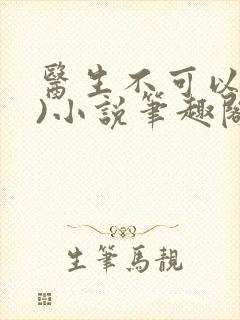 醫生不可以
)小說筆趣閣
生筆馬靚